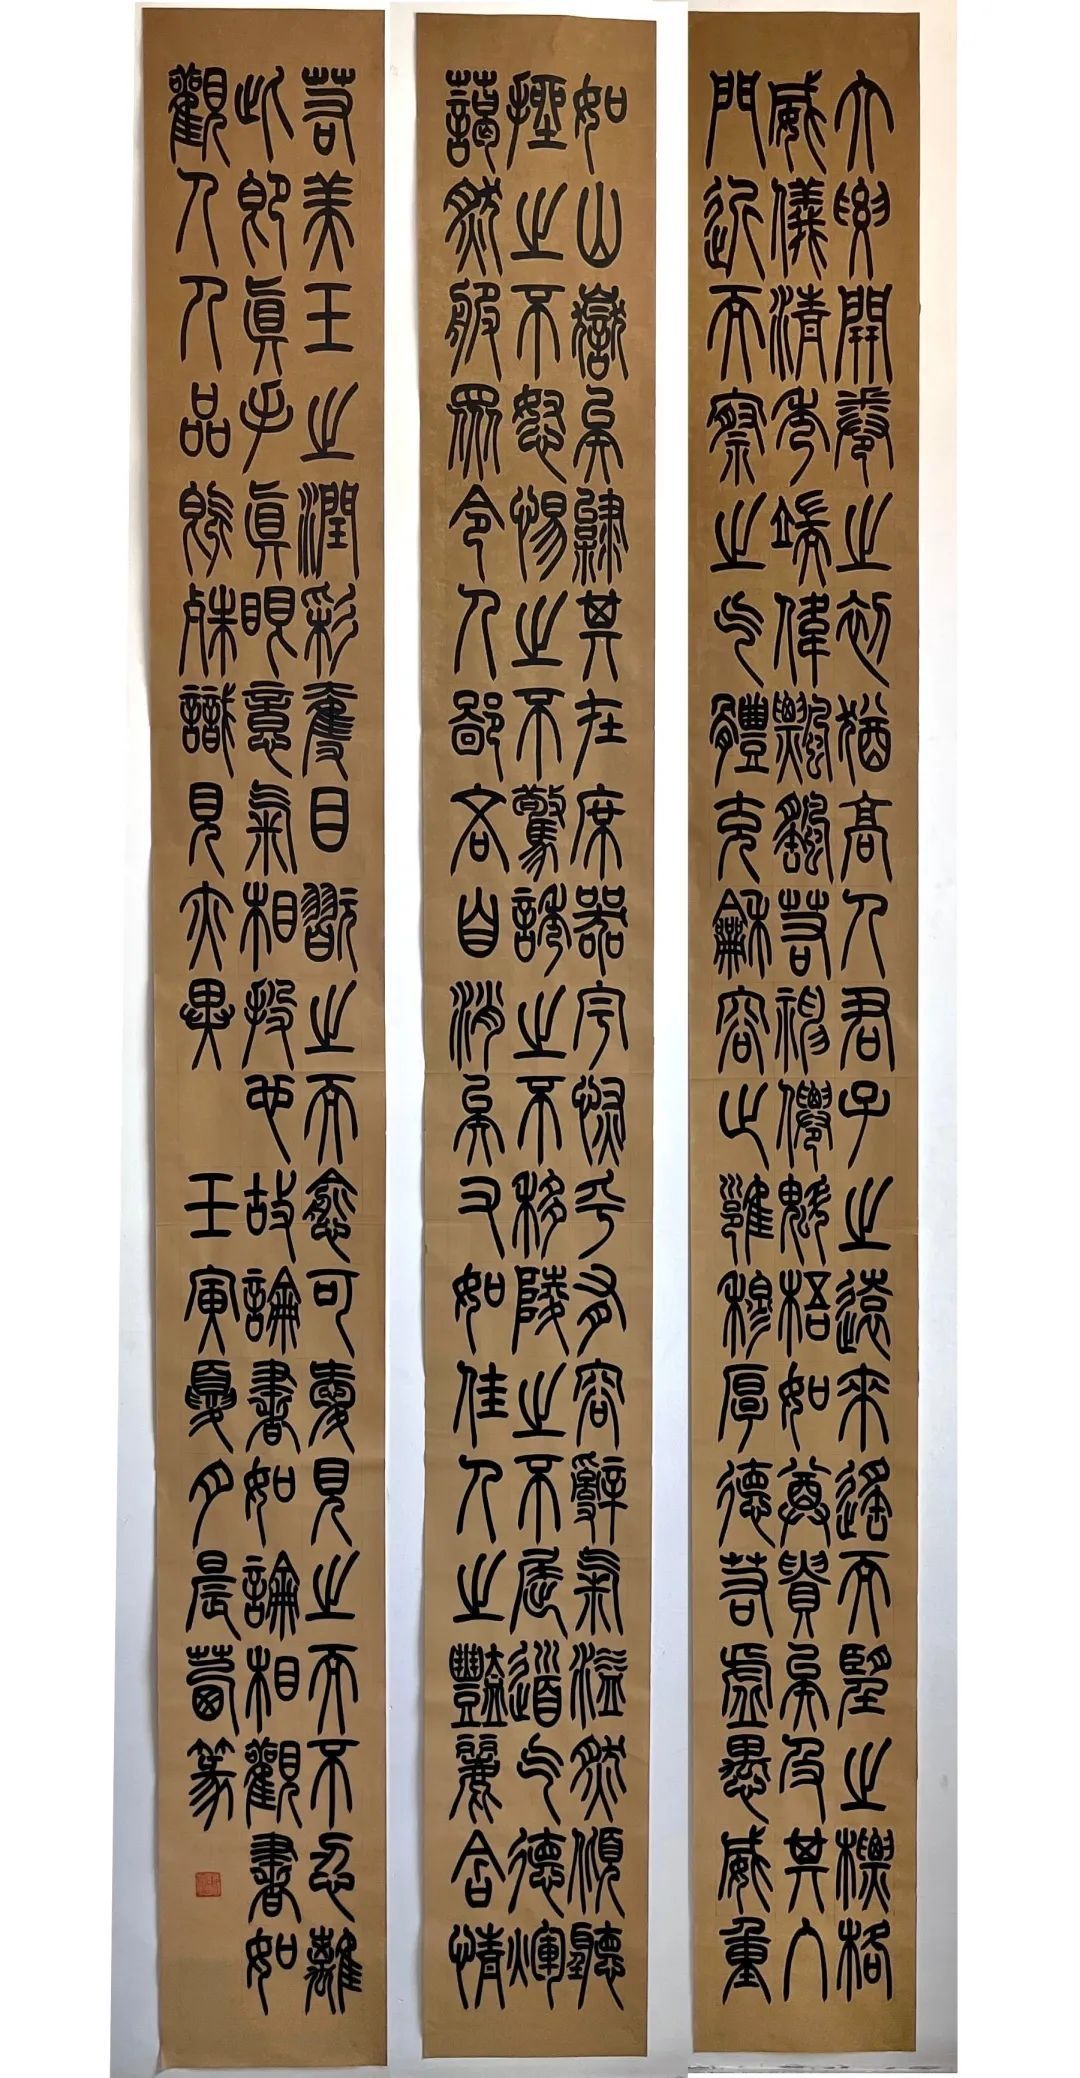 大要開卷之初猶高人君子之遠來遙而望之標格
威儀清秀端偉飄颻若神僊魁梧如尊貴矣及其入
門近而察之气體充和容止雍穆厚德若虛愚威重
如山嶽矣其在席器宇恢乎有容辭氣溢然傾聽
挫之不怒惕之不驚誘之不移陵之不屈道气德輝
藹然服眾令人鄙吝自消矣又如佳人之豔麗含情
若美玉之潤彩奪目翫之而愈可愛見之而不忍離
此即真手真眼意氣相投也故論書如論相觀書如
觀人人品既殊識見亦異 壬寅夏月晨篆